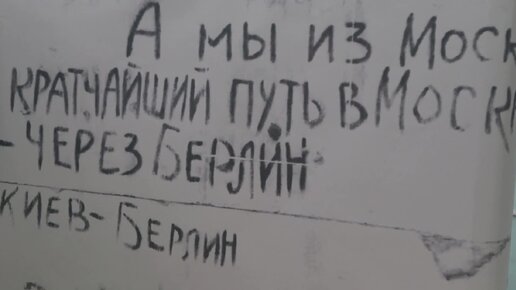 А мы из Моск
КРАТЧАЙШИЙ ПУТЬ В МОСК
-ЧЕРЕЗ БЕРЛИН
КИЕВ-БЕРЛИН